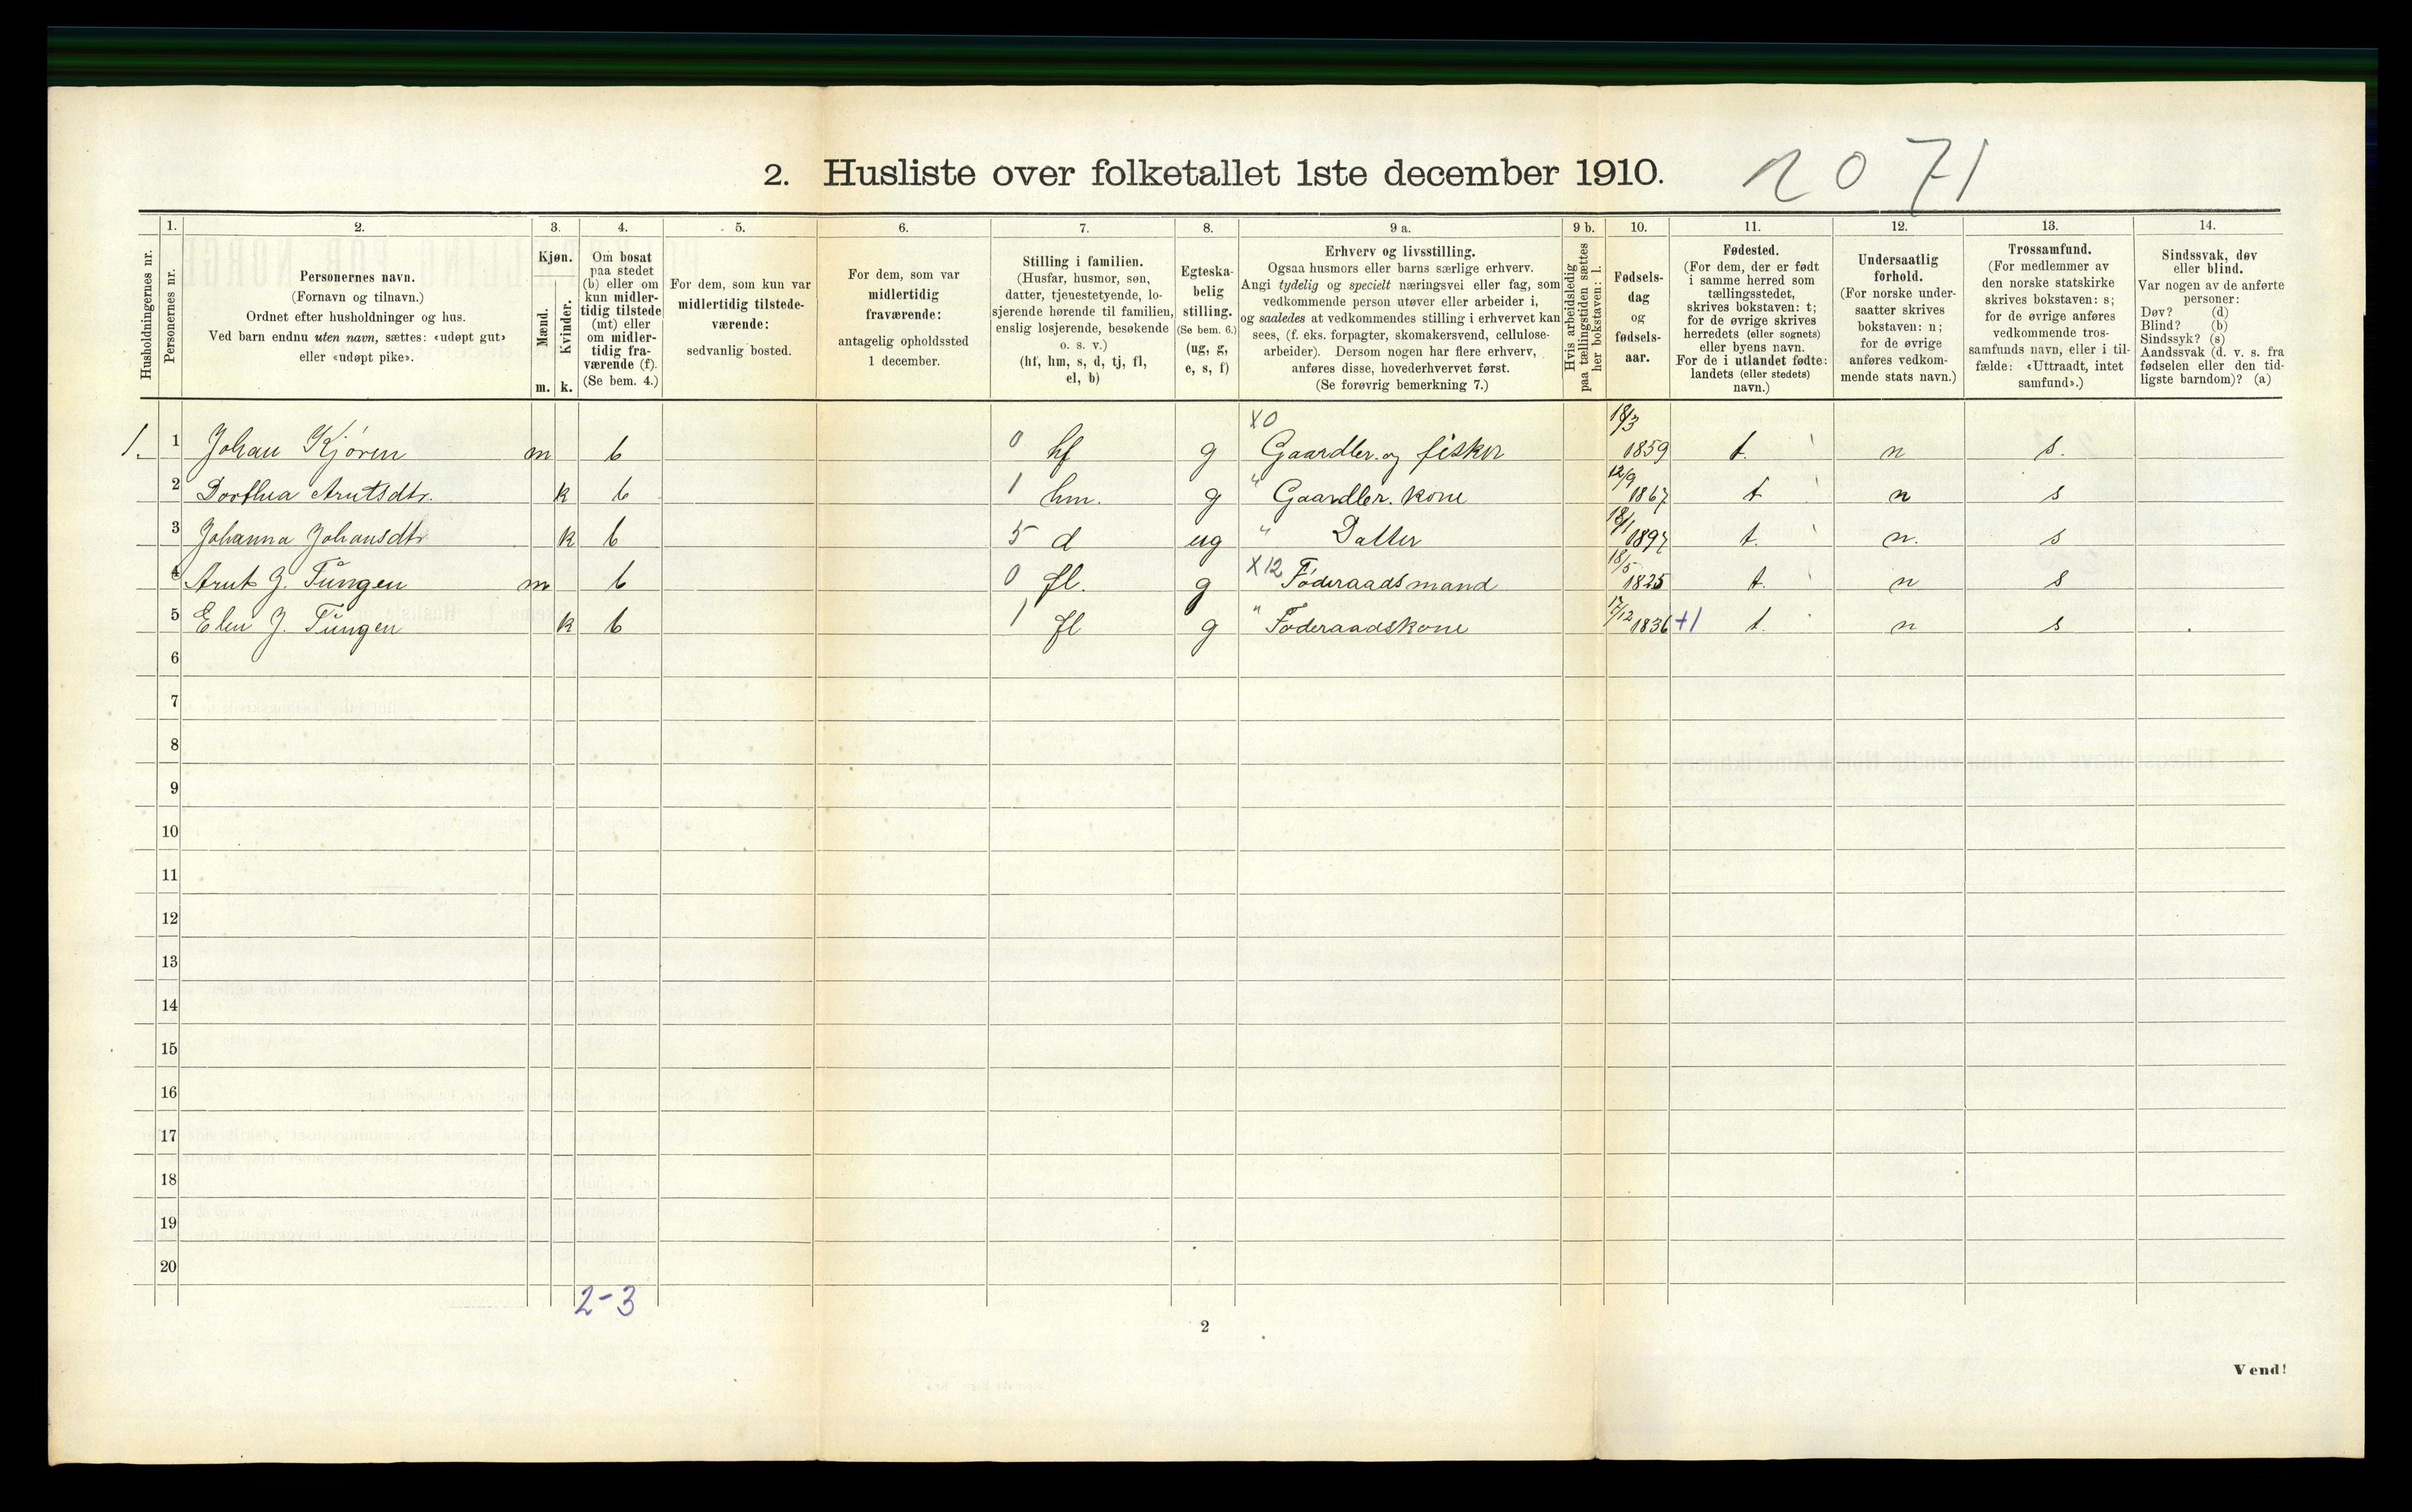 2. Husliste over folketallet 1ste december 1910.
2071
Husholdningernes nr.
1.
Personernes nr.
2.
Personernes navn.
(Fornavn og tilnavn.)
Ordnet efter husholdninger og hus.
Ved barn endnu uten navn, sættes: «udøpt gut»
eller «udøpt pike».
3.
Kjøn.
Mænd.
Kvinder.
m. k.
4.
Om bosat
paa stedet
(b) eller om
kun midler-
tidig tilstede
(mt) eller
om midler-
tidig fra-
værende (f).
(Se bem. 4.)
5.
For dem, som kun var
midlertidig tilstede-
værende:
sedvanlig bosted.
6.
For dem, som var
midlertidig
fraværende:
antagelig opholdssted
1 december.
7.
Stilling i familien.
(Husfar, husmor, søn,
datter, tjenestetyende, lo-
sjerende hørende til familien,
enslig losjerende, besøkende
o. s. v.)
(hf, hm, s, d, tj, fl,
el, b)
8.
Egteska-
belig
stilling.
(Se bem. 6.)
(ug, g,
e, s, f)
9 a.
Erhverv og livsstilling.
Ogsaa husmors eller barns særlige erhverv.
Angi tydelig og specielt næringsvei eller fag, som
vedkommende person utøver eller arbeider i,
og saaledes at vedkommendes stilling i erhvervet kan
sees, (f. eks. forpagter, skomakersvend, cellulose-
arbeider). Dersom nogen har flere erhverv,
anføres disse, hovederhvervet først.
(Se forøvrig bemerkning 7.)
9 b.
Hvis arbeidsledig
paa tællingstiden sættes
her bokstaven: l.
10.
Fødsels-
dag
og
fødsels-
aar.
11.
Fødested.
(For dem, der er født
i samme herred som
tællingsstedet,
skrives bokstaven: t;
for de øvrige skrives
herredets (eller sognets)
eller byens navn.
For de i utlandet fødte:
landets (eller stedets)
navn.)
12.
Undersaatlig
forhold.
(For norske under-
saatter skrives
bokstaven: n;
for de øvrige
anføres vedkom-
mende stats navn.)
13.
Trossamfund.
(For medlemmer av
den norske statskirke
skrives bokstaven: s;
for de øvrige anføres
vedkommende tros-
samfunds navn, eller i til-
fælde: «Uttraadt, intet
samfund».)
14.
Sindssvak, døv
eller blind.
Var nogen av de anførte
personer:
Døv? (d)
Blind? (b)
Sindssyk? (s)
Aandssvak (d. v. s. fra
fødselen eller den tid-
ligste barndom)? (a)
1. 1 Johan Kjøren m b 0 hf g X0 Gaardbr. og fisker 18/3 1859 t. n s.
2 Dorthea Arntsdtr. k b 1 hm. g " Gaardbr. kone 12/9 1867 t n s
3 Johanna Johansdtr k b 5 d ug " Datter 18/1 1897 t. n. s
4 Arnt J. Tungen m b 0 fl. g X12 Føderaadsmand 18/5 1825 t. n s
5 Elen J. Tungen k b 1 fl g " Føderaadskone 17/12 1836 +1 t. n s
6
7
8
9
10
11
12
13
14
15
16
17
18
19
20
2-3
2
Vend!